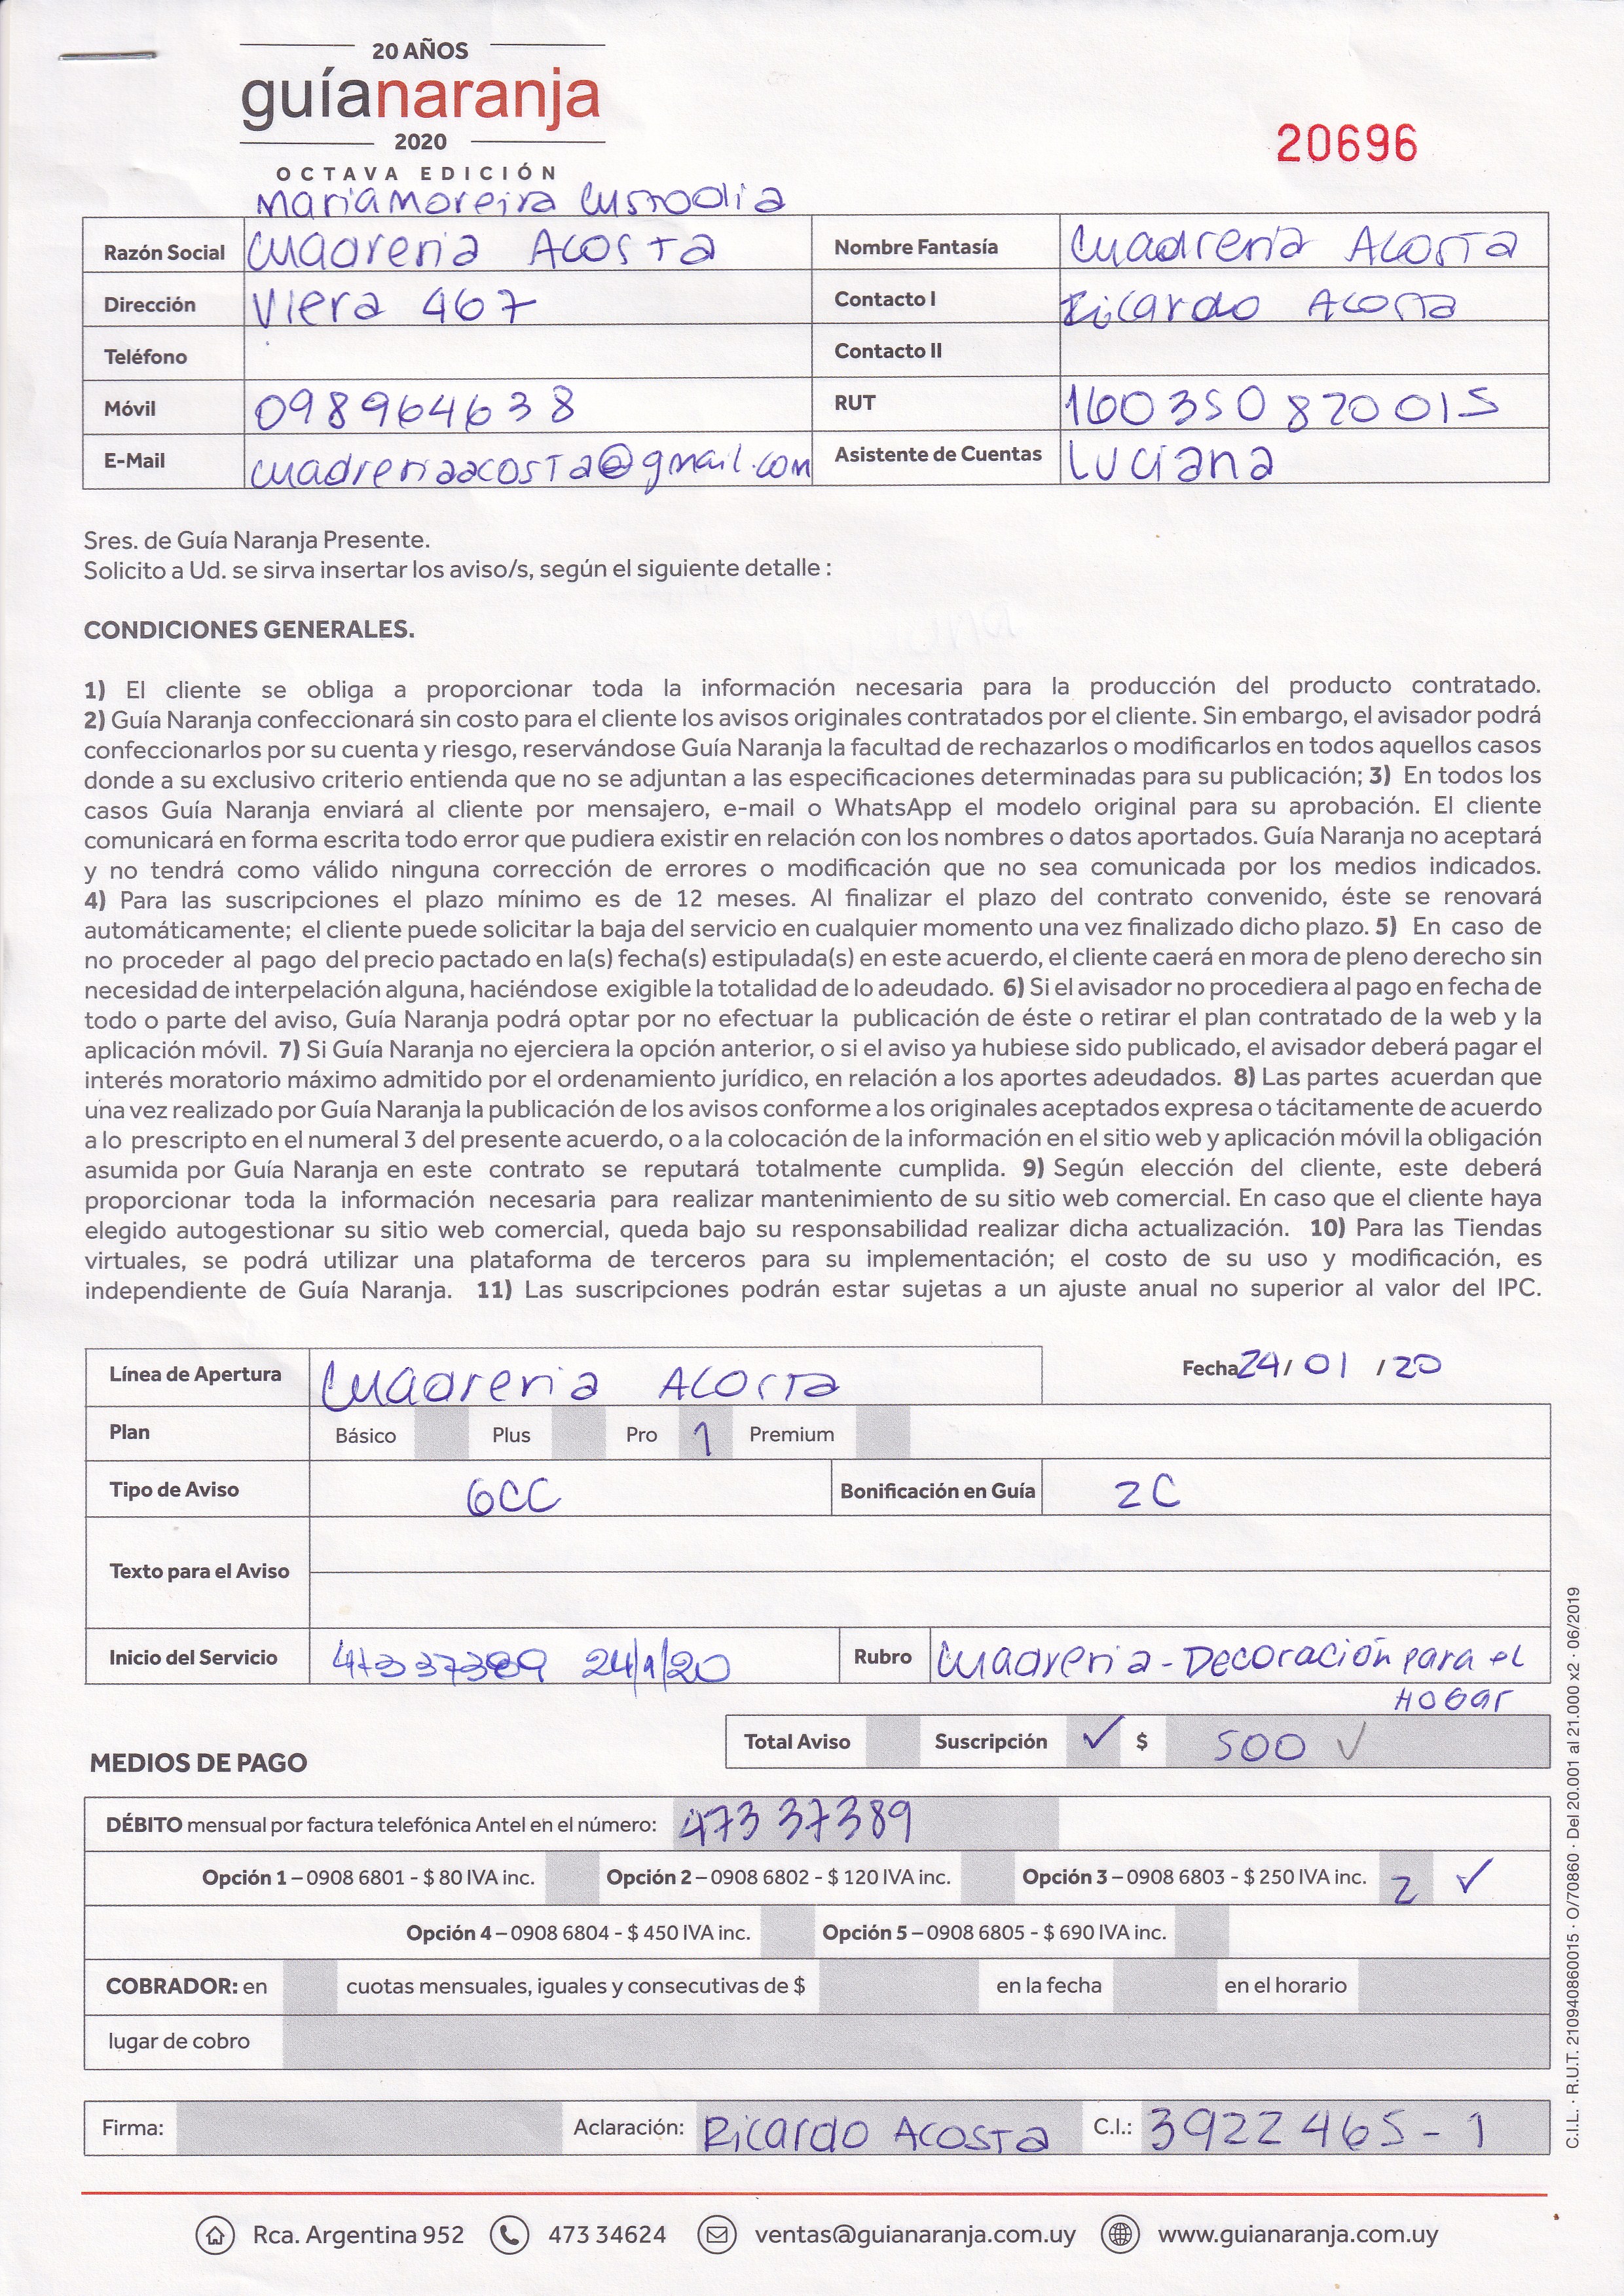 20 AÑOS
guíanaranja
2020
OCTAVA EDICIÓN
20696
Maria Moreira Custodia
Razón Social Cuadreria Acosta Nombre Fantasía Cuadreria Acosta
Dirección Viera 467 Contacto I Ricardo Acosta
Teléfono Contacto II
Móvil 098964638 RUT 160350820015
E-Mail cuadreriaacosta@gmail.com Asistente de Cuentas Luciana
Sres. de Guía Naranja Presente.
Solicito a Ud. se sirva insertar los aviso/s, según el siguiente detalle :
CONDICIONES GENERALES.
1) El cliente se obliga a proporcionar toda la información necesaria para la producción del producto contratado.
2) Guía Naranja confeccionará sin costo para el cliente los avisos originales contratados por el cliente. Sin embargo, el avisador podrá
confeccionarlos por su cuenta y riesgo, reservándose Guía Naranja la facultad de rechazarlos o modificarlos en todos aquellos casos
donde a su exclusivo criterio entienda que no se adjuntan a las especificaciones determinadas para su publicación; 3) En todos los
casos Guía Naranja enviará al cliente por mensajero, e-mail o WhatsApp el modelo original para su aprobación. El cliente
comunicará en forma escrita todo error que pudiera existir en relación con los nombres o datos aportados. Guía Naranja no aceptará
y no tendrá como válido ninguna corrección de errores o modificación que no sea comunicada por los medios indicados.
4) Para las suscripciones el plazo mínimo es de 12 meses. Al finalizar el plazo del contrato convenido, éste se renovará
automáticamente; el cliente puede solicitar la baja del servicio en cualquier momento una vez finalizado dicho plazo. 5) En caso de
no proceder al pago del precio pactado en la(s) fecha(s) estipulada(s) en este acuerdo, el cliente caerá en mora de pleno derecho sin
necesidad de interpelación alguna, haciéndose exigible la totalidad de lo adeudado. 6) Si el avisador no procediera al pago en fecha de
todo o parte del aviso, Guía Naranja podrá optar por no efectuar la publicación de éste o retirar el plan contratado de la web y la
aplicación móvil. 7) Si Guía Naranja no ejerciera la opción anterior, o si el aviso ya hubiese sido publicado, el avisador deberá pagar el
interés moratorio máximo admitido por el ordenamiento jurídico, en relación a los aportes adeudados. 8) Las partes acuerdan que
una vez realizado por Guía Naranja la publicación de los avisos conforme a los originales aceptados expresa o tácitamente de acuerdo
a lo prescripto en el numeral 3 del presente acuerdo, o a la colocación de la información en el sitio web y aplicación móvil la obligación
asumida por Guía Naranja en este contrato se reputará totalmente cumplida. 9) Según elección del cliente, este deberá
proporcionar toda la información necesaria para realizar mantenimiento de su sitio web comercial. En caso que el cliente haya
elegido autogestionar su sitio web comercial, queda bajo su responsabilidad realizar dicha actualización. 10) Para las Tiendas
virtuales, se podrá utilizar una plataforma de terceros para su implementación; el costo de su uso y modificación, es
independiente de Guía Naranja. 11) Las suscripciones podrán estar sujetas a un ajuste anual no superior al valor del IPC.
Línea de Apertura Cuadreria Acosta Fecha 24/ 01 / 20
Plan Básico Plus Pro 1 Premium
Tipo de Aviso 6CC Bonificación en Guía 2C
Texto para el Aviso
Inicio del Servicio 47337389 24/1/20 Rubro Cuadreria - Decoración para el
Hogar
Total Aviso Suscripción ✓ $ 500 ✓
MEDIOS DE PAGO
DÉBITO mensual por factura telefónica Antel en el número: 473 37389
Opción 1 – 0908 6801 - $ 80 IVA inc. Opción 2 – 0908 6802 - $ 120 IVA inc. Opción 3 – 0908 6803 - $ 250 IVA inc. 2 ✓
Opción 4 – 0908 6804 - $ 450 IVA inc. Opción 5 – 0908 6805 - $ 690 IVA inc.
COBRADOR: en cuotas mensuales, iguales y consecutivas de $ en la fecha en el horario
lugar de cobro
Firma: Aclaración: Ricardo Acosta C.I.: 3922465-1
Rca. Argentina 952 473 34624 ventas@guianaranja.com.uy www.guianaranja.com.uy
C.I.L. · R.U.T. 210940860015 · O/70860 · Del 20.001 al 21.000 x2 · 06/2019